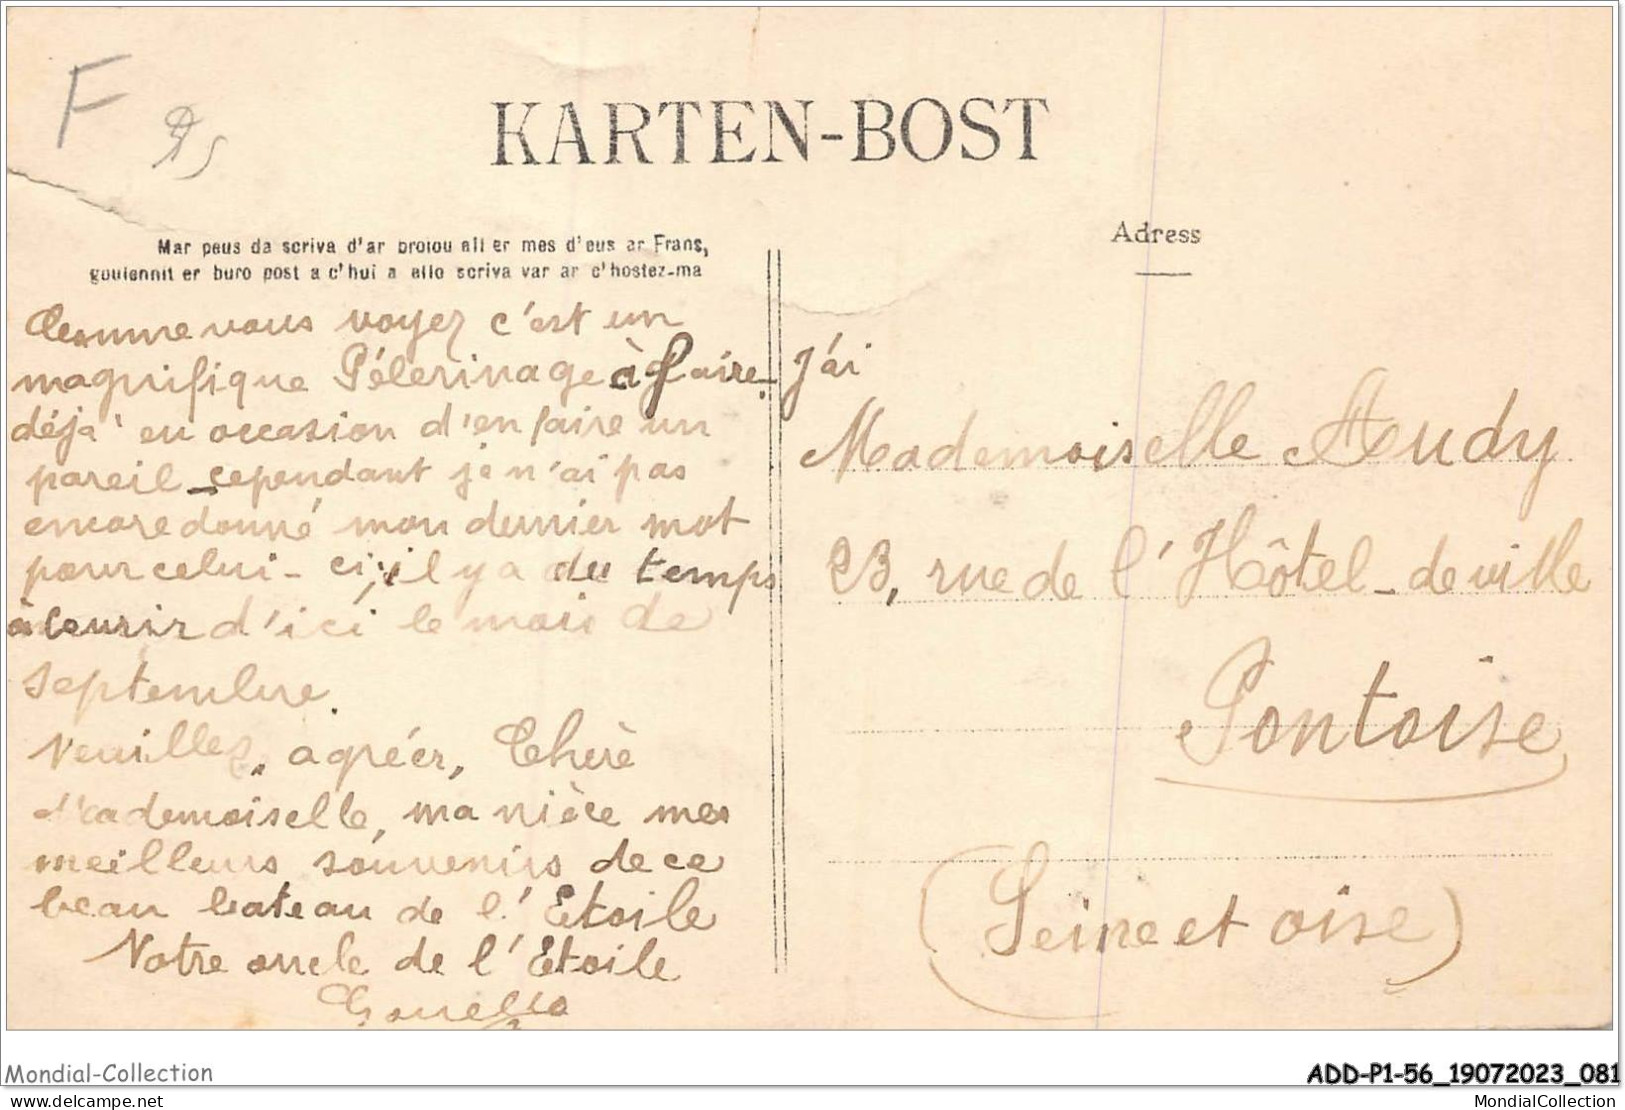 F
KARTEN-BOST
Mar peus da scriva d'ar broiou all er mes d'eus ar Frans,
goulennit er buro post a c'hui a ello scriva var ar c'hostez-ma
Adress
Comme vous voyez c'est un
magnifique Pélerinage à faire. J'ai
déjà eu occasion d'en faire un
pareil cependant je n'ai pas
encore donné mon dernier mot
pour celui-ci, il y a du temps
à courir d'ici le mois de
septembre.
Veuillez, agréer, Chère
Mademoiselle, ma nière mes
meilleurs souvenirs de ce
beau bateau de l'Etoile
Notre oncle de l'Etoile
Mademoiselle Audy
23, rue de l'Hôtel-de ville
Pontoise
(Seine et oise)
Mondial-Collection
ADD-P1-56_19072023_081
www.delcampe.net
MondialCollection